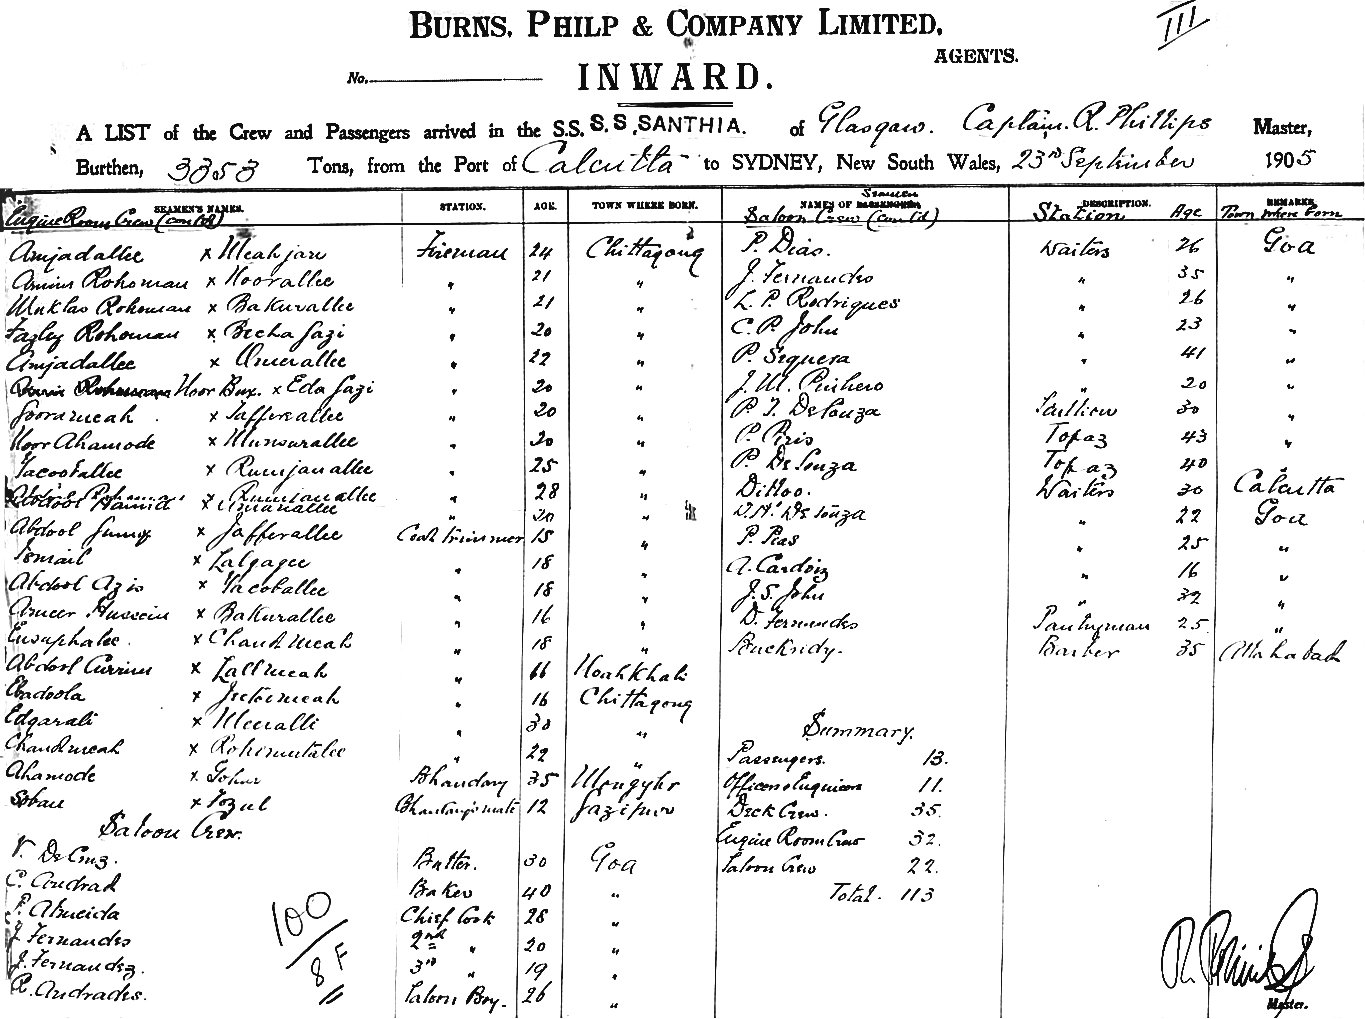 III
BURNS, PHILP & COMPANY LIMITED,
AGENTS.
No.
INWARD.
A LIST of the Crew and Passengers arrived in the S.S. S.S. SANTHIA. of Glasgow. Captain. R. Phillips Master,
Burthen, 3353 Tons, from the Port of Calcutta to SYDNEY, New South Wales, 23rd September 1905
SEAMEN'S NAMES. STATION. AGE. TOWN WHERE BORN.
Engine Room Crew (cont'd)
Amjadallee x Meahjan Fireman 24 Chittagong
Amin Rohoman x Noorallee " 21 "
Muklas Rohoman x Bakurallee " 21 "
Fazley Rohoman x Becha Gazi " 20 "
Amjadallee x Omerallee " 22 "
Noor Bux. x Eda Gazi " 20 "
Goorameah x Jafferallee " 20 "
Noor Ahamode x Munsurallee " 20 "
Yacooballee x Rumjanallee " 25 "
Abdool Rohoman x Rumjanallee " 28 "
Abdool Hamid x Amanallee " 30 "
Abdool Gunny x Jafferallee Coal trimmer 15 "
Ismail x Lalgagee " 18 "
Abdool Azis x Yacoballee " 18 "
Ameer Hussein x Bakurallee " 16 "
Eusuphalee x Chandmeah " 18 "
Abdool Currim x Lallmeah " 66 Noahkhali
Ebadoola x " 16 Chittagong
Edgarali x Meeralli " 30 "
Chandmeah x Rohimutalee " 22 "
Ahamode x Gohur Bhandary 35 Monghyr
Soban x Fozul Bhandary's mate 12 Gazipur
Saloon Crew.
V. De Cruz. Butler. 30 Goa
C. Andrad Baker 40 "
P. Almeida Chief Cook 28 "
J. Fernandes 2nd " 20 "
J. Fernandez. 3rd " 19 "
R. Andrades. Saloon Boy. 26 "
100/8F
NAMES OF PASSENGERS. Seamen DESCRIPTION. REMARKS.
Saloon Crew (cont'd) Station Age Town where born
P. Dias. Waiters 26 Goa
J. Fernandes " 35 "
L. P. Rodrigues " 26 "
C. P. John " 23 "
P. Sequera " 41 "
J. M. Pinhero " 20 "
P. F. DeSouza Scullion 30 "
P. Piris Topaz 43 "
P. De Souza Topaz 40 "
Dittoo. Waiters 30 Calcutta
De Souza " 22 Goa
P. Pias " 25 "
A. Cardoz " 16 "
J. S. John " 32 "
D. Fernandes Pantryman 25 "
Buckridy. Barber 35 Mahabad
Summary.
Passengers. 13.
Officers & Engineers 11.
Deck Crew. 35.
Engine Room Crew 32.
Saloon Crew 22.
Total. 113
R. Phillips
Master.